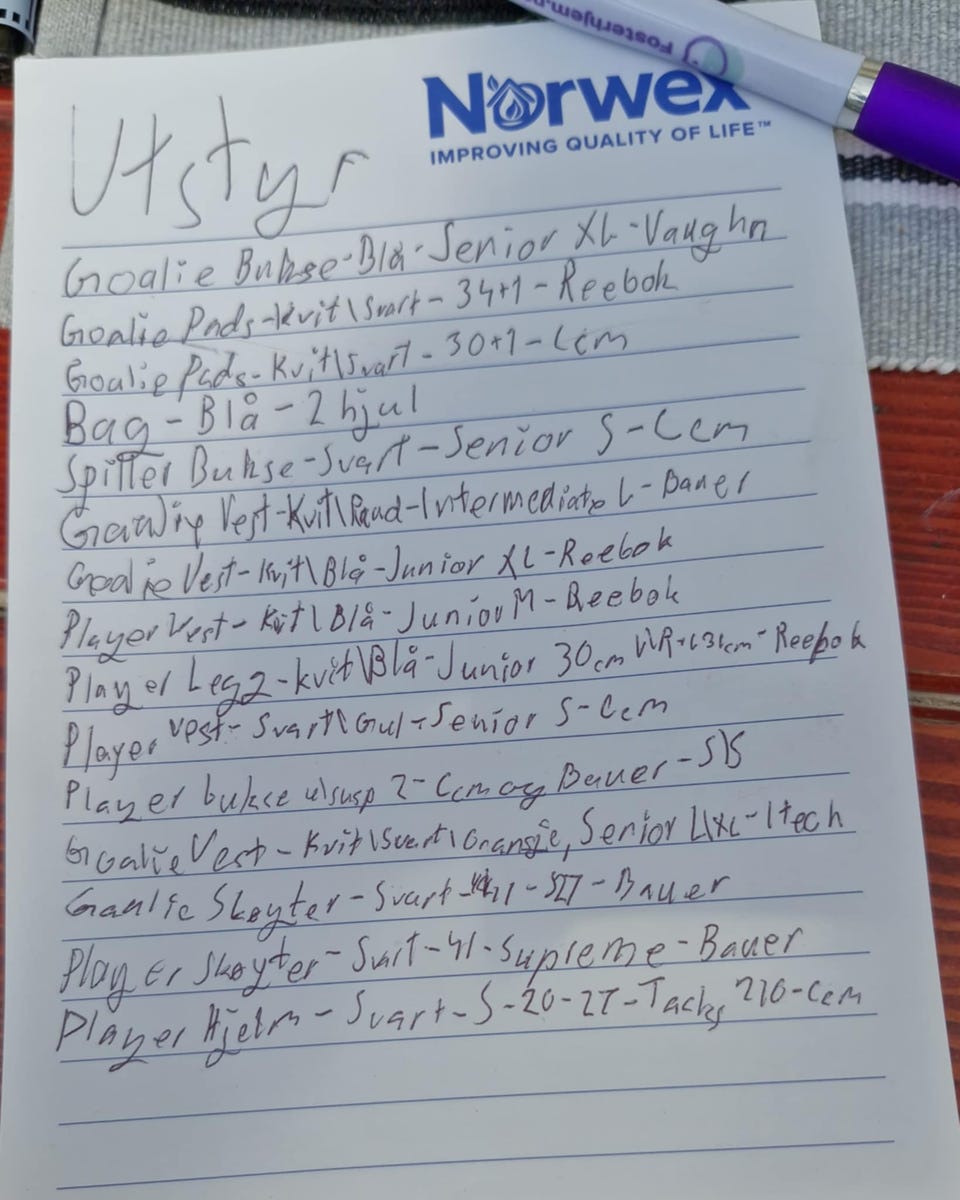 Fosterhjem
Norwex
IMPROVING QUALITY OF LIFE™
Utstyr
Goalie Bukse-Blå-Senior XL-Vaughn
Goalie Pads-kvit\Svart-34+1-Reebok
Goalie Pads-Kvit\Svart-30+1-Ccm
Bag-Blå-2 hjul
Spiller Bukse-Svart-Senior S-Ccm
Vest-Kvit\Raud-Intermediate L-Bauer
Goalie Vest-Kvit\Blå-Junior XL-Reebok
Player Vest-Kvit\Blå-Junior M-Reebok
Player Legg-kvit\Blå-Junior 30cm Reebok
Player vest-Svart\Gul-Senior S-Ccm
Player bukse u/susp 2-Ccm og Bauer-S\S
Goalie Vest-Kvit\Svart\Oransje, Senior L\XL-Itech
Goalie Skøyter-Svart-41-Bauer
Player Skøyter-Svart-41-Supreme-Bauer
Player Hjelm-Svart-S-20-27-Tacks 210-Ccm